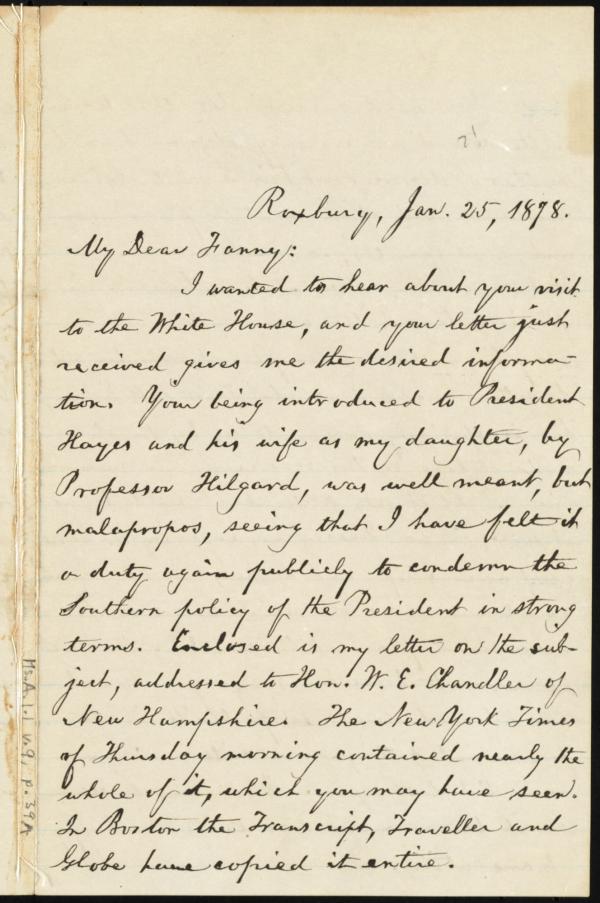 Roxbury, Jan. 25, 1878.
My Dear Fanny:
I wanted to hear about your visit
to the White House, and your letter just
received gives me the desired informa-
tion. Your being introduced to President
Hayes and his wife as my daughter, by
Professor Hilgard, was well meant, but
malapropos, seeing that I have felt it
a duty again publicly to condemn the
Southern policy of the President in strong
terms. Enclosed is my letter on the sub-
ject, addressed to Hon. W. E. Chandler of
New Hampshire. The New York Times
of Thursday morning contained nearly the
whole of it, which you may have seen.
In Boston the Transcript, Traveller and
Globe have copied it entire.
Ms.A.1.1 v.9, p.39A